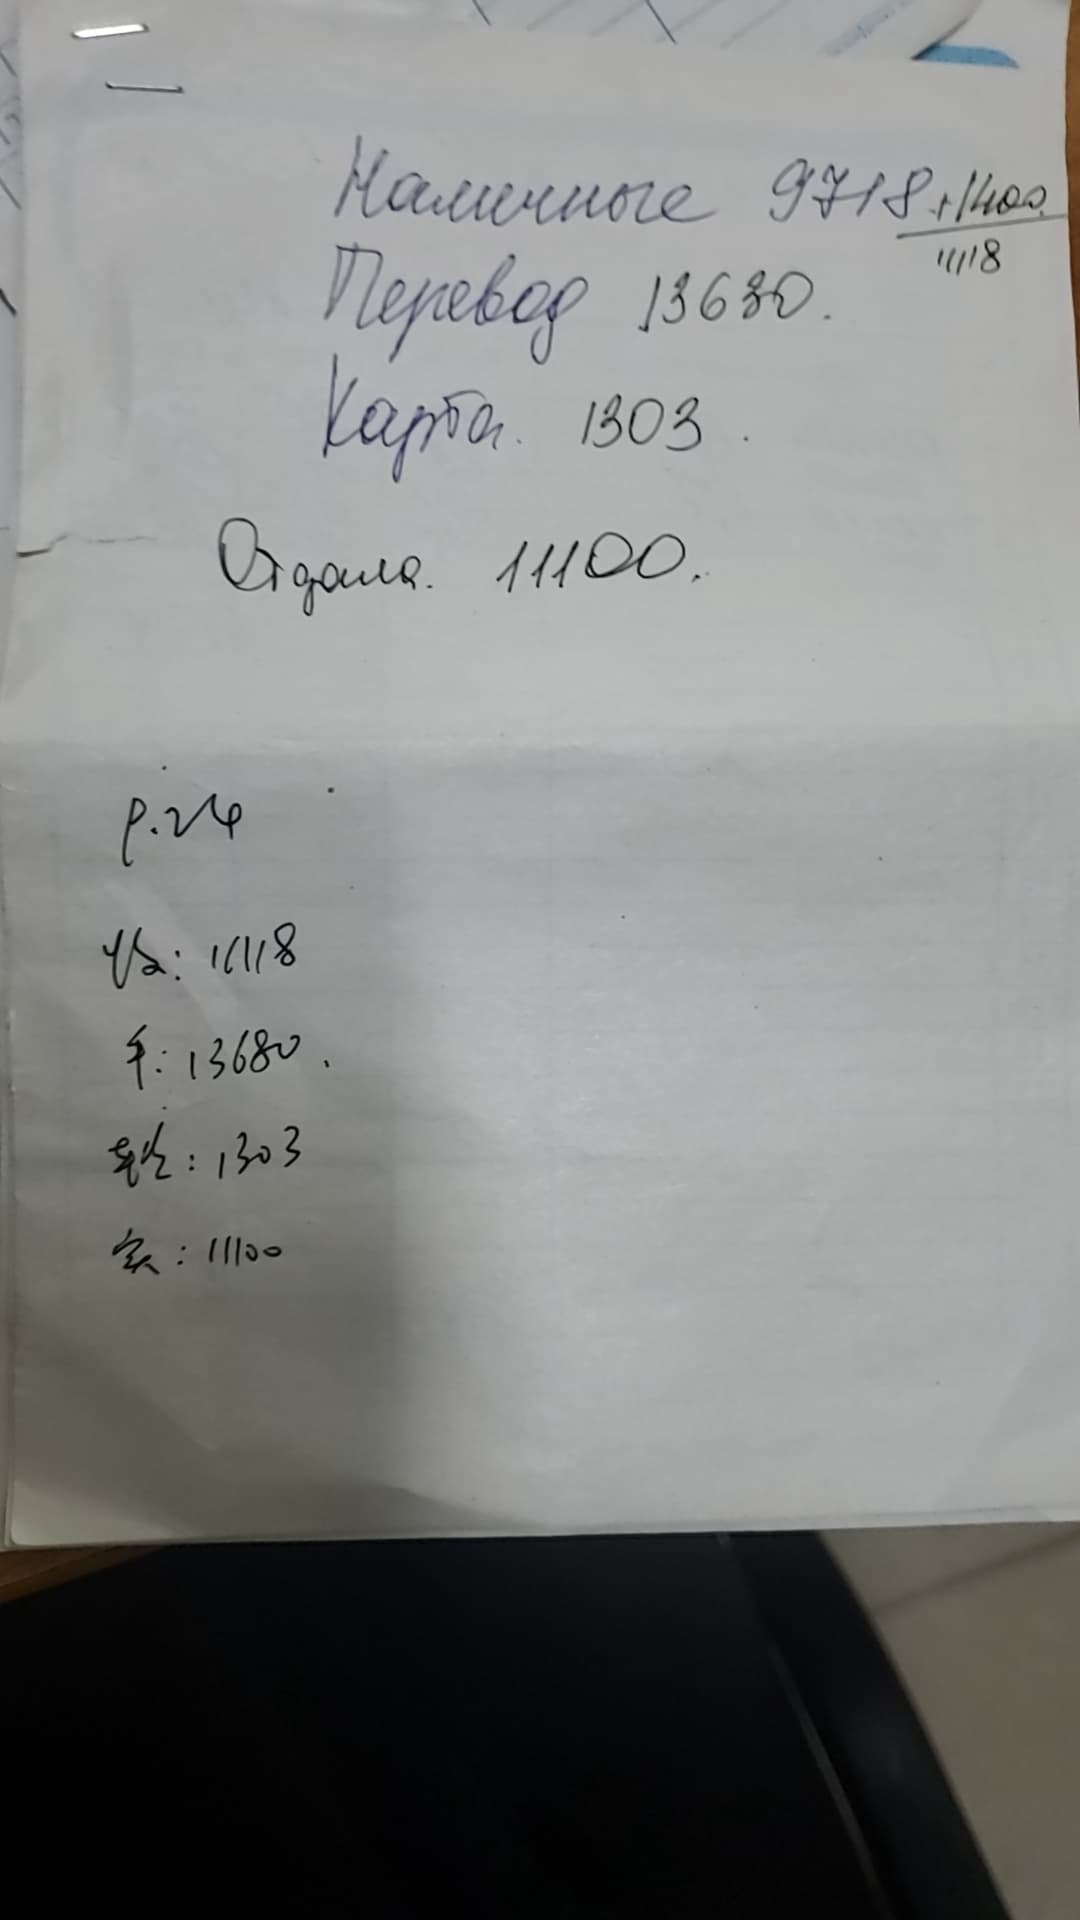 Наличные 9718 + 1400
11118
Перевод 13680.
Карта. 1303.
Отдала. 11100.
收: 11118
手: 13680.
: 1303
实: 11100